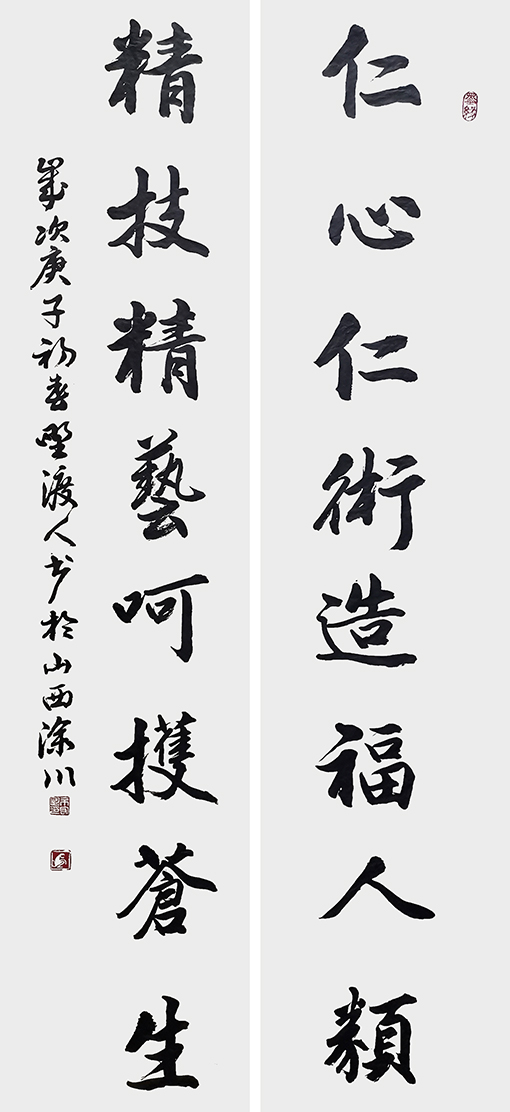 仁心仁術造福人類
精技精藝呵擭蒼生
歲次庚子初春野渡人书於山西川